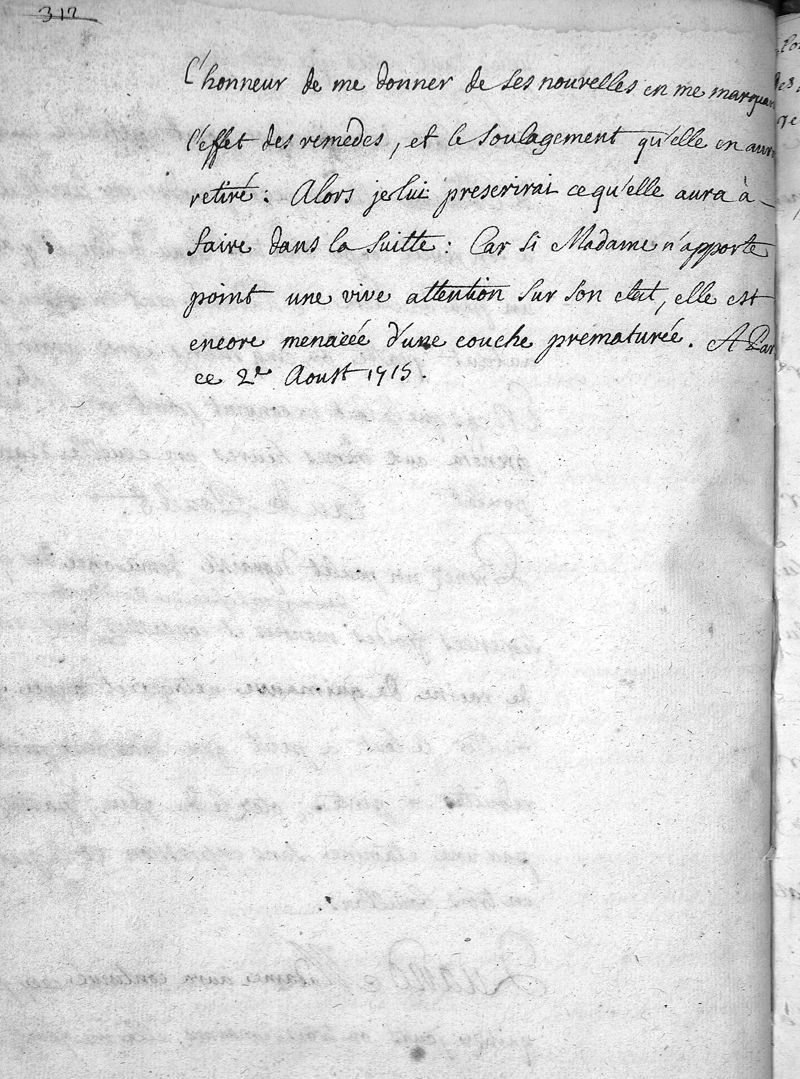 312
l'honneur de me donner de ses nouvelles en me marquan
l'effet des remedes, et le soulagement qu'elle en aura
retiré: Alors je lui prescrirai ce qu'elle aura à
faire dans la suitte: Car si Madame n'apporte
point une vive attention sur son etat, elle est
encore menacée d'une couche prematurée. A Par
ce 2e Aoust 1715.